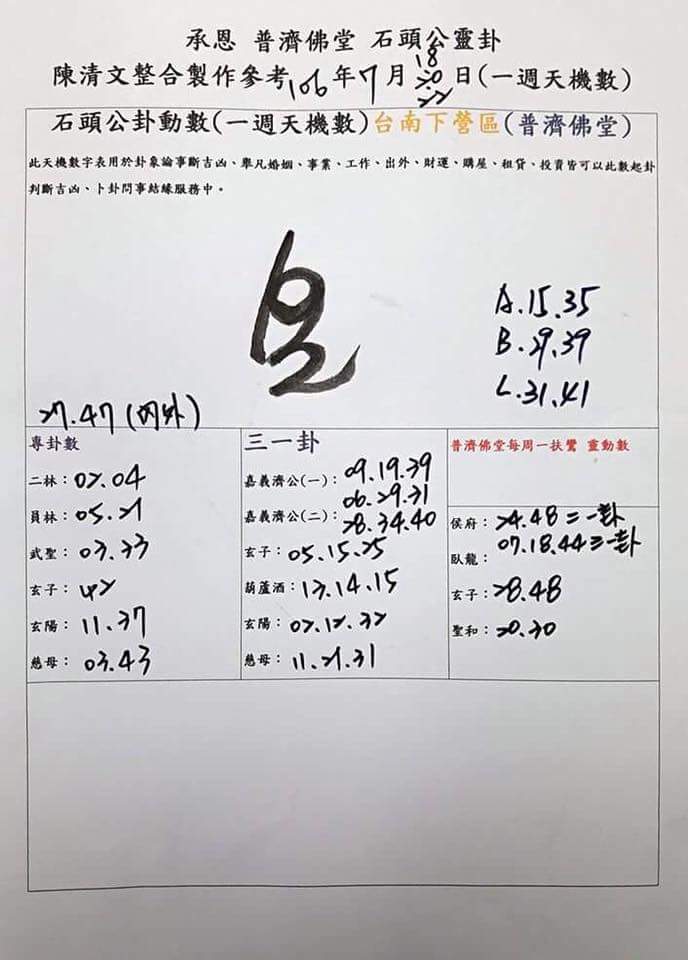 承恩 普濟佛堂 石頭公靈卦
陳清文整合製作參考106年7月18.20.22日(一週天機數)
石頭公卦動數(一週天機數)台南下營區(普濟佛堂)
此天機數字表用於卦象論事斷吉凶、舉凡婚姻、事業、工作、出外、財運、購屋、租貸、投資皆可以此數起卦
判斷吉凶、卜卦問事結緣服務中。
A.15.35
B.29.39
C.31.41
27.47(內外)
專卦數
二林：02.04
員林：05.21
武聖：03.33
玄子：42
玄陽：11.37
慈母：03.43
三一卦
嘉義濟公(一)：09.19.39
06.29.31
嘉義濟公(二)：28.34.40
玄子：05.15.25
葫蘆酒：13.14.15
玄陽：02.12.32
慈母：11.21.31
普濟佛堂每周一扶鸞 靈動數
侯府：24.48二一卦
臥龍：07.18.44三一卦
玄子：28.48
聖和：20.30